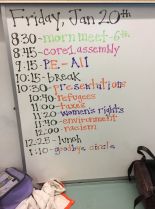 Friday, Jan 20th
8:30-morn meet-6th
8:45-core1.assembly
9:15-P.E.-All
10:15-break
10:30-presentations
10:40-refugees
11:00-taxes
11:20 women's rights
11:40-environment
12:00-racism
12:25-lunch
1:10-goodbye circle